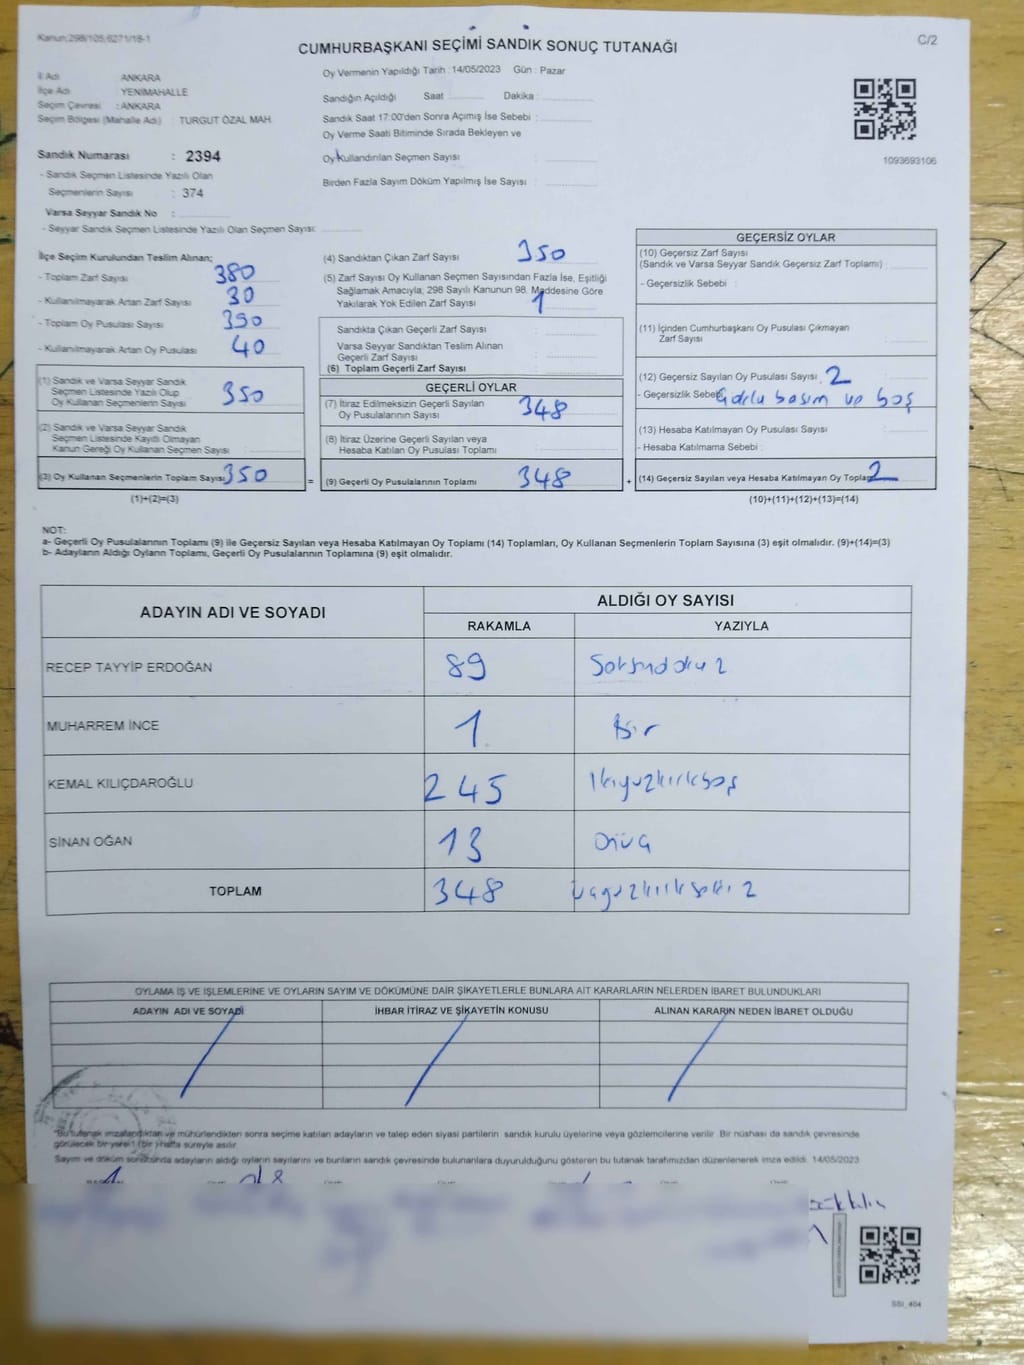 Kanun:298/105,6271/18-1
C/2
CUMHURBAŞKANI SEÇİMİ SANDIK SONUÇ TUTANAĞI
İl Adı ANKARA
İlçe Adı YENİMAHALLE
Seçim Çevresi : ANKARA
Seçim Bölgesi (Mahalle Adı) : TURGUT ÖZAL MAH.
Sandık Numarası : 2394
- Sandık Seçmen Listesinde Yazılı Olan
Seçmenlerin Sayısı : 374
Varsa Seyyar Sandık No :
- Seyyar Sandık Seçmen Listesinde Yazılı Olan Seçmen Sayısı:
Oy Vermenin Yapıldığı Tarih : 14/05/2023 Gün : Pazar
Sandığın Açıldığı Saat Dakika :
Sandık Saat 17:00'den Sonra Açımış İse Sebebi :
Oy Verme Saati Bitiminde Sırada Bekleyen ve
Oy Kullandırılan Seçmen Sayısı :
Birden Fazla Sayım Döküm Yapılmış İse Sayısı :
1093693106
İlçe Seçim Kurulundan Teslim Alınan;
- Toplam Zarf Sayısı 380
- Kullanılmayarak Artan Zarf Sayısı 30
- Toplam Oy Pusulası Sayısı 390
- Kullanılmayarak Artan Oy Pusulası 40
(1) Sandık ve Varsa Seyyar Sandık
Seçmen Listesinde Yazılı Olup
Oy Kullanan Seçmenlerin Sayısı 350
(2) Sandık ve Varsa Seyyar Sandık
Seçmen Listesinde Kayıtlı Olmayan
Kanun Gereği Oy Kullanan Seçmen Sayısı :
(3) Oy Kullanan Seçmenlerin Toplam Sayısı 350
(1)+(2)=(3)
(4) Sandıktan Çıkan Zarf Sayısı 350
(5) Zarf Sayısı Oy Kullanan Seçmen Sayısından Fazla İse, Eşitliği
Sağlamak Amacıyla; 298 Sayılı Kanunun 98. Maddesine Göre
Yakılarak Yok Edilen Zarf Sayısı : 1
Sandıkta Çıkan Geçerli Zarf Sayısı :
Varsa Seyyar Sandıktan Teslim Alınan
Geçerli Zarf Sayısı :
(6) Toplam Geçerli Zarf Sayısı :
GEÇERLİ OYLAR
(7) İtiraz Edilmeksizin Geçerli Sayılan
Oy Pusulalarının Sayısı 348
(8) İtiraz Üzerine Geçerli Sayılan veya
Hesaba Katılan Oy Pusulası Toplamı :
= (9) Geçerli Oy Pusulalarının Toplamı 348
GEÇERSİZ OYLAR
(10) Geçersiz Zarf Sayısı
(Sandık ve Varsa Seyyar Sandık Geçersiz Zarf Toplamı) :
- Geçersizlik Sebebi :
(11) İçinden Cumhurbaşkanı Oy Pusulası Çıkmayan
Zarf Sayısı :
(12) Geçersiz Sayılan Oy Pusulası Sayısı 2
- Geçersizlik Sebebi basım ve boş
(13) Hesaba Katılmayan Oy Pusulası Sayısı :
- Hesaba Katılmama Sebebi :
+ (14) Geçersiz Sayılan veya Hesaba Katılmayan Oy Toplamı 2
(10)+(11)+(12)+(13)=(14)
NOT:
a- Geçerli Oy Pusulalarının Toplamı (9) ile Geçersiz Sayılan veya Hesaba Katılmayan Oy Toplamı (14) Toplamları, Oy Kullanan Seçmenlerin Toplam Sayısına (3) eşit olmalıdır. (9)+(14)=(3)
b- Adayların Aldığı Oyların Toplamı, Geçerli Oy Pusulalarının Toplamına (9) eşit olmalıdır.
ADAYIN ADI VE SOYADI
ALDIĞI OY SAYISI
RAKAMLA YAZIYLA
RECEP TAYYİP ERDOĞAN 89 Seksendokuz
MUHARREM İNCE 1 Bir
KEMAL KILIÇDAROĞLU 245 İkiyüzkırkbeş
SİNAN OĞAN 13 Onüç
TOPLAM 348 üçyüzkırksekiz
OYLAMA İŞ VE İŞLEMLERİNE VE OYLARIN SAYIM VE DÖKÜMÜNE DAİR ŞİKAYETLERLE BUNLARA AİT KARARLARIN NELERDEN İBARET BULUNDUKLARI
ADAYIN ADI VE SOYADI İHBAR İTİRAZ VE ŞİKAYETİN KONUSU ALINAN KARARIN NEDEN İBARET OLDUĞU
Bu tutanak imzalandıktan ve mühürlendikten sonra seçime katılan adayların ve talep eden siyasi partilerin sandık kurulu üyelerine veya gözlemcilerine verilir. Bir nüshası da sandık çevresinde
görülecek bir yere 1 (bir) hafta süreyle asılır.
Sayım ve döküm sonucunda adayların aldığı oyların sayılarını ve bunların sandık çevresinde bulunanlara duyurulduğunu gösteren bu tutanak tarafımızdan düzenlenerek imza edildi. 14/05/2023
SSİ_404